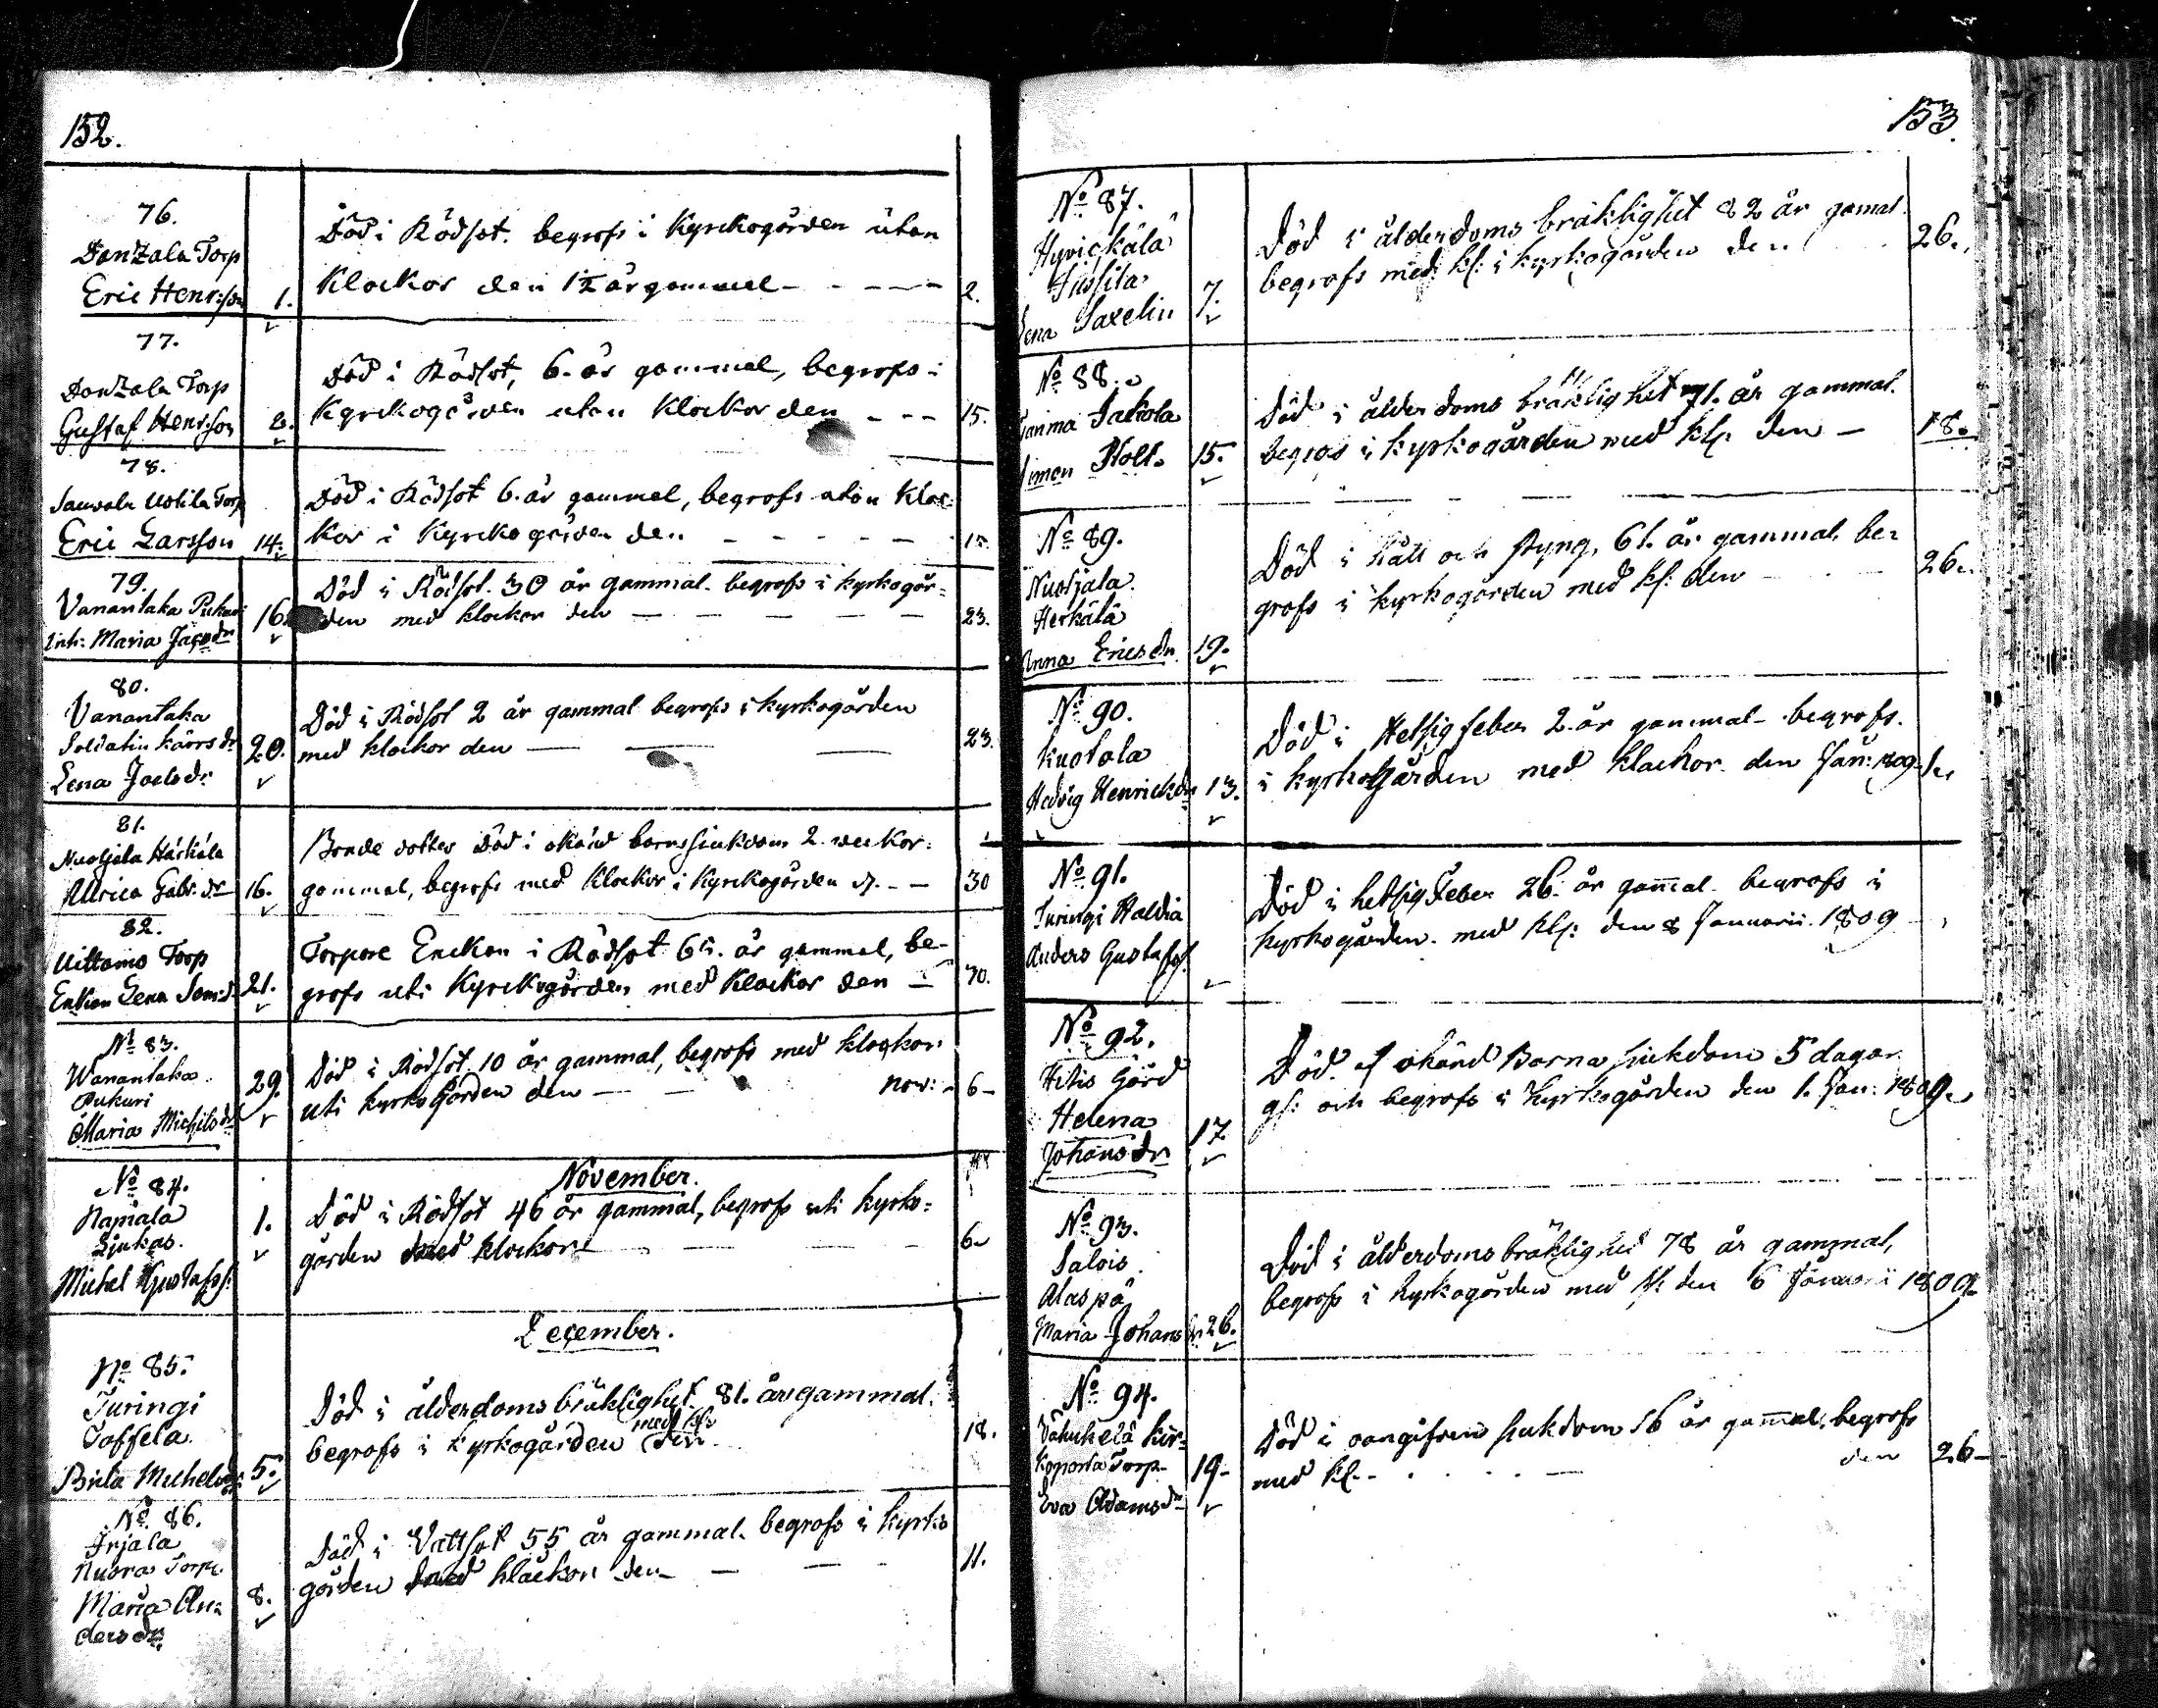 152.
76.
Danzala Torp
Eric Henr:son 1.
Död i Rödsot. begrofs i Kyrckogården utan
Klockor den 1½ år gammal - - - - 2.
77.
Danzala Torp
Gustaf Henr:son 2.
Död i Rödsot, 6. år gammal, begrofs i
Kyrckogården utan Klockor den - - - 15.
78.
Sauvala Uotila Torp
Eric Larsson 14.
Död i Rödsot 6. år gammal, begrofs utan Kloc-
kor i Kyrckogården den - - - - - 15.
79.
Vanantaka Pukuri
Inh: Maria Jacodr 16.
Död i Rödsot. 30 år gammal. begrofs i kyrkogår=
den med klockor den - - - - - 23.
80.
Vanantaka
Soldatin Kårrs dr
Lena Joelsdr 20.
Död i Rödsot 2 år gammal begrofs i kyrkogården
med klockor den — — — 23.
81.
Nuotjala Härkälä
Ulrica Gabr. dr 16.
Bonde dotter Död i okänd barnsjuckdom 2. veckor
gammal, begrofs med Klockor i Kyrckogården d. - - 30
82.
Uittamo Torp
Enkian Lena Sim:d. 21.
Torpare Enckan i Rödsot 65. år gammal, be-
grofs uti Kyrckogården med Klockor den - 30.
No 83.
Wanantaka
Pukuri
Maria Michelsdr 29.
Död i Rödsot, 10 år gammal, begrofs med klockor
uti kyrkogården den - - nov: 6-
November.
No 84.
Napiala
Sjukas.
Michel Gustafss: 1.
Död i Rödsot 46 år gammal, begrofs uti kyrko=
gården med klockor - - - - 6.
December.
No 85.
Turingi
Toffela
Brita Michelsdr 5.
Död i ålderdoms bräklighet. 81. år gammal.
begrofs i kyrkogården med kl: den 18.
No 86.
Irjala
Nuora Torp.
Maria An=
dersdr 8.
Död i Vattsot 55 år gammal. begrofs i kyrko
gården med klockor den - - - 11.
153.
No 87.
Hyvickälä
Jussila
Lena Saxelin 7.
Död i ålderdoms bräklighet 82 år gamal.
begrofs med kl: i kyrkogården den 26.
No 88.
Tanma Jakola
Simon Stolt 15.
Död i ålderdoms bräklighet 71. år gammal.
begros i kyrkogården med kl: den - 18.
No 89.
Nuotjala
Herkälä
Anna Ericsdr 19.
Död i Håll och styng, 61. år gammal. be=
grofs i kyrkogården med kl: den - - 26.
No 90.
Kuotola
Hedvig Henricksdr 13.
Död i Hetsig feber 2. år gammal - begrofs.
i kyrkogården med klockor den Jan: 1809. 1.
No 91.
Turingi Haldia
Anders Gustafss.
Död i hetsig Feber 26. år gam̄al. begrofs i
kyrkogården. med kl: den 8 Januarii. 1809
No 92.
Hitis Gård
Helena
Johansdr 17
Död af okänd Barna sjukdom 5 dagar
gl: och begrofs i Kyrkogården den 1. Jan: 1809.
No 93.
Salois
Alaspä
Maria Johansdr 26.
Död i ålderdoms bräklighed 78 år gammal,
begrofs i kyrkogården med kl: den 6 Januarii 1809
No 94.
Kir=
koporta Torp
Eva Adamsdr 19-
Död i oangifven sjukdom 56 år gam̄al, begrofs
med kl. - - - - den 26-